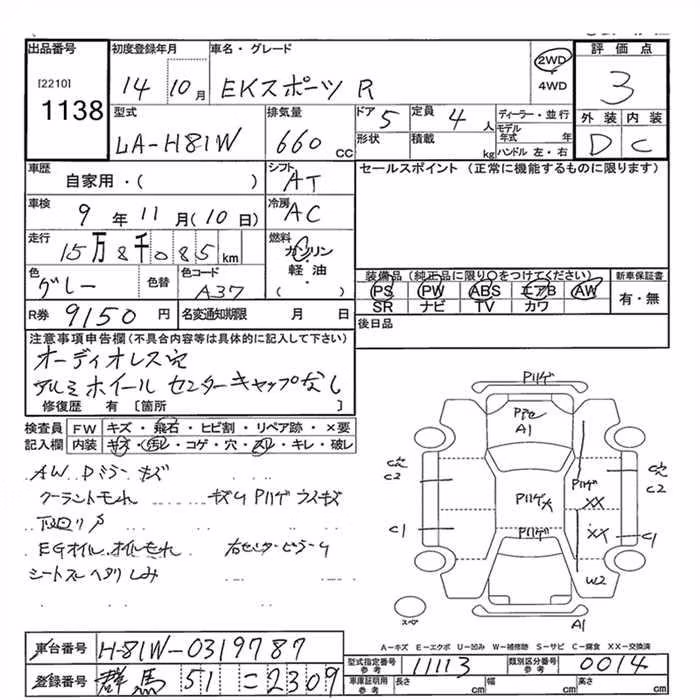 出品番号 初度登録年月 車名・グレード 2WD 4WD 評価点
[2210] 1138 14 10月 EKスポーツ R 3
型式 排気量 ドア 5 定員 4人 ディーラー・並行 外装 内装
LA-H81W 660 CC 形状 積載 kg モデル年式 年 ハンドル 左・右 D C
車歴 自家用・( ) シフト AT セールスポイント (正常に機能するものに限ります)
車検 9年11月(10日) 冷房 AC
走行 15万8千085km 燃料 ガソリン・軽油・( )
色 グレー 色替 色コード A37 装備品 (純正品に限り○をつけてください) 新車保証書
PS PW ABS エアB AW 有・無
SR ナビ TV カワ
R券 9150円 名変通知期限 月 日 後日品
注意事項申告欄(不具合内容等は具体的に記入して下さい)
オーディオレス穴
アルミホイール センターキャップなし
修復歴 有 [箇所 ]
検査員記入欄 FW キズ・飛石・ヒビ割・リペア跡・×要
内装 キズ・汚レ・コゲ・穴・スレ・キレ・破レ
AW Dミラーキズ
クーラントモれ キズU Pハゲ ライキズ
下回りサ
EGオイル、オイルモれ 右センターピラーU
シートスレ ヘタリ しみ
Pハゲ
A1
C2 Pハゲ C2
Pハゲ大 XX
C1 Pハゲ XX C1
W2
スペア A1
A-キズ E-エクボ U-凹み W-補修跡 S-サビ C-腐食 XX-交換済
車台番号 H81W-0319787
登録番号 群馬 51 = 2309
型式指定番号 参考 11113 類別区分番号 参考 0014
車庫証明記載 参考 長さ cm 幅 cm 高さ cm